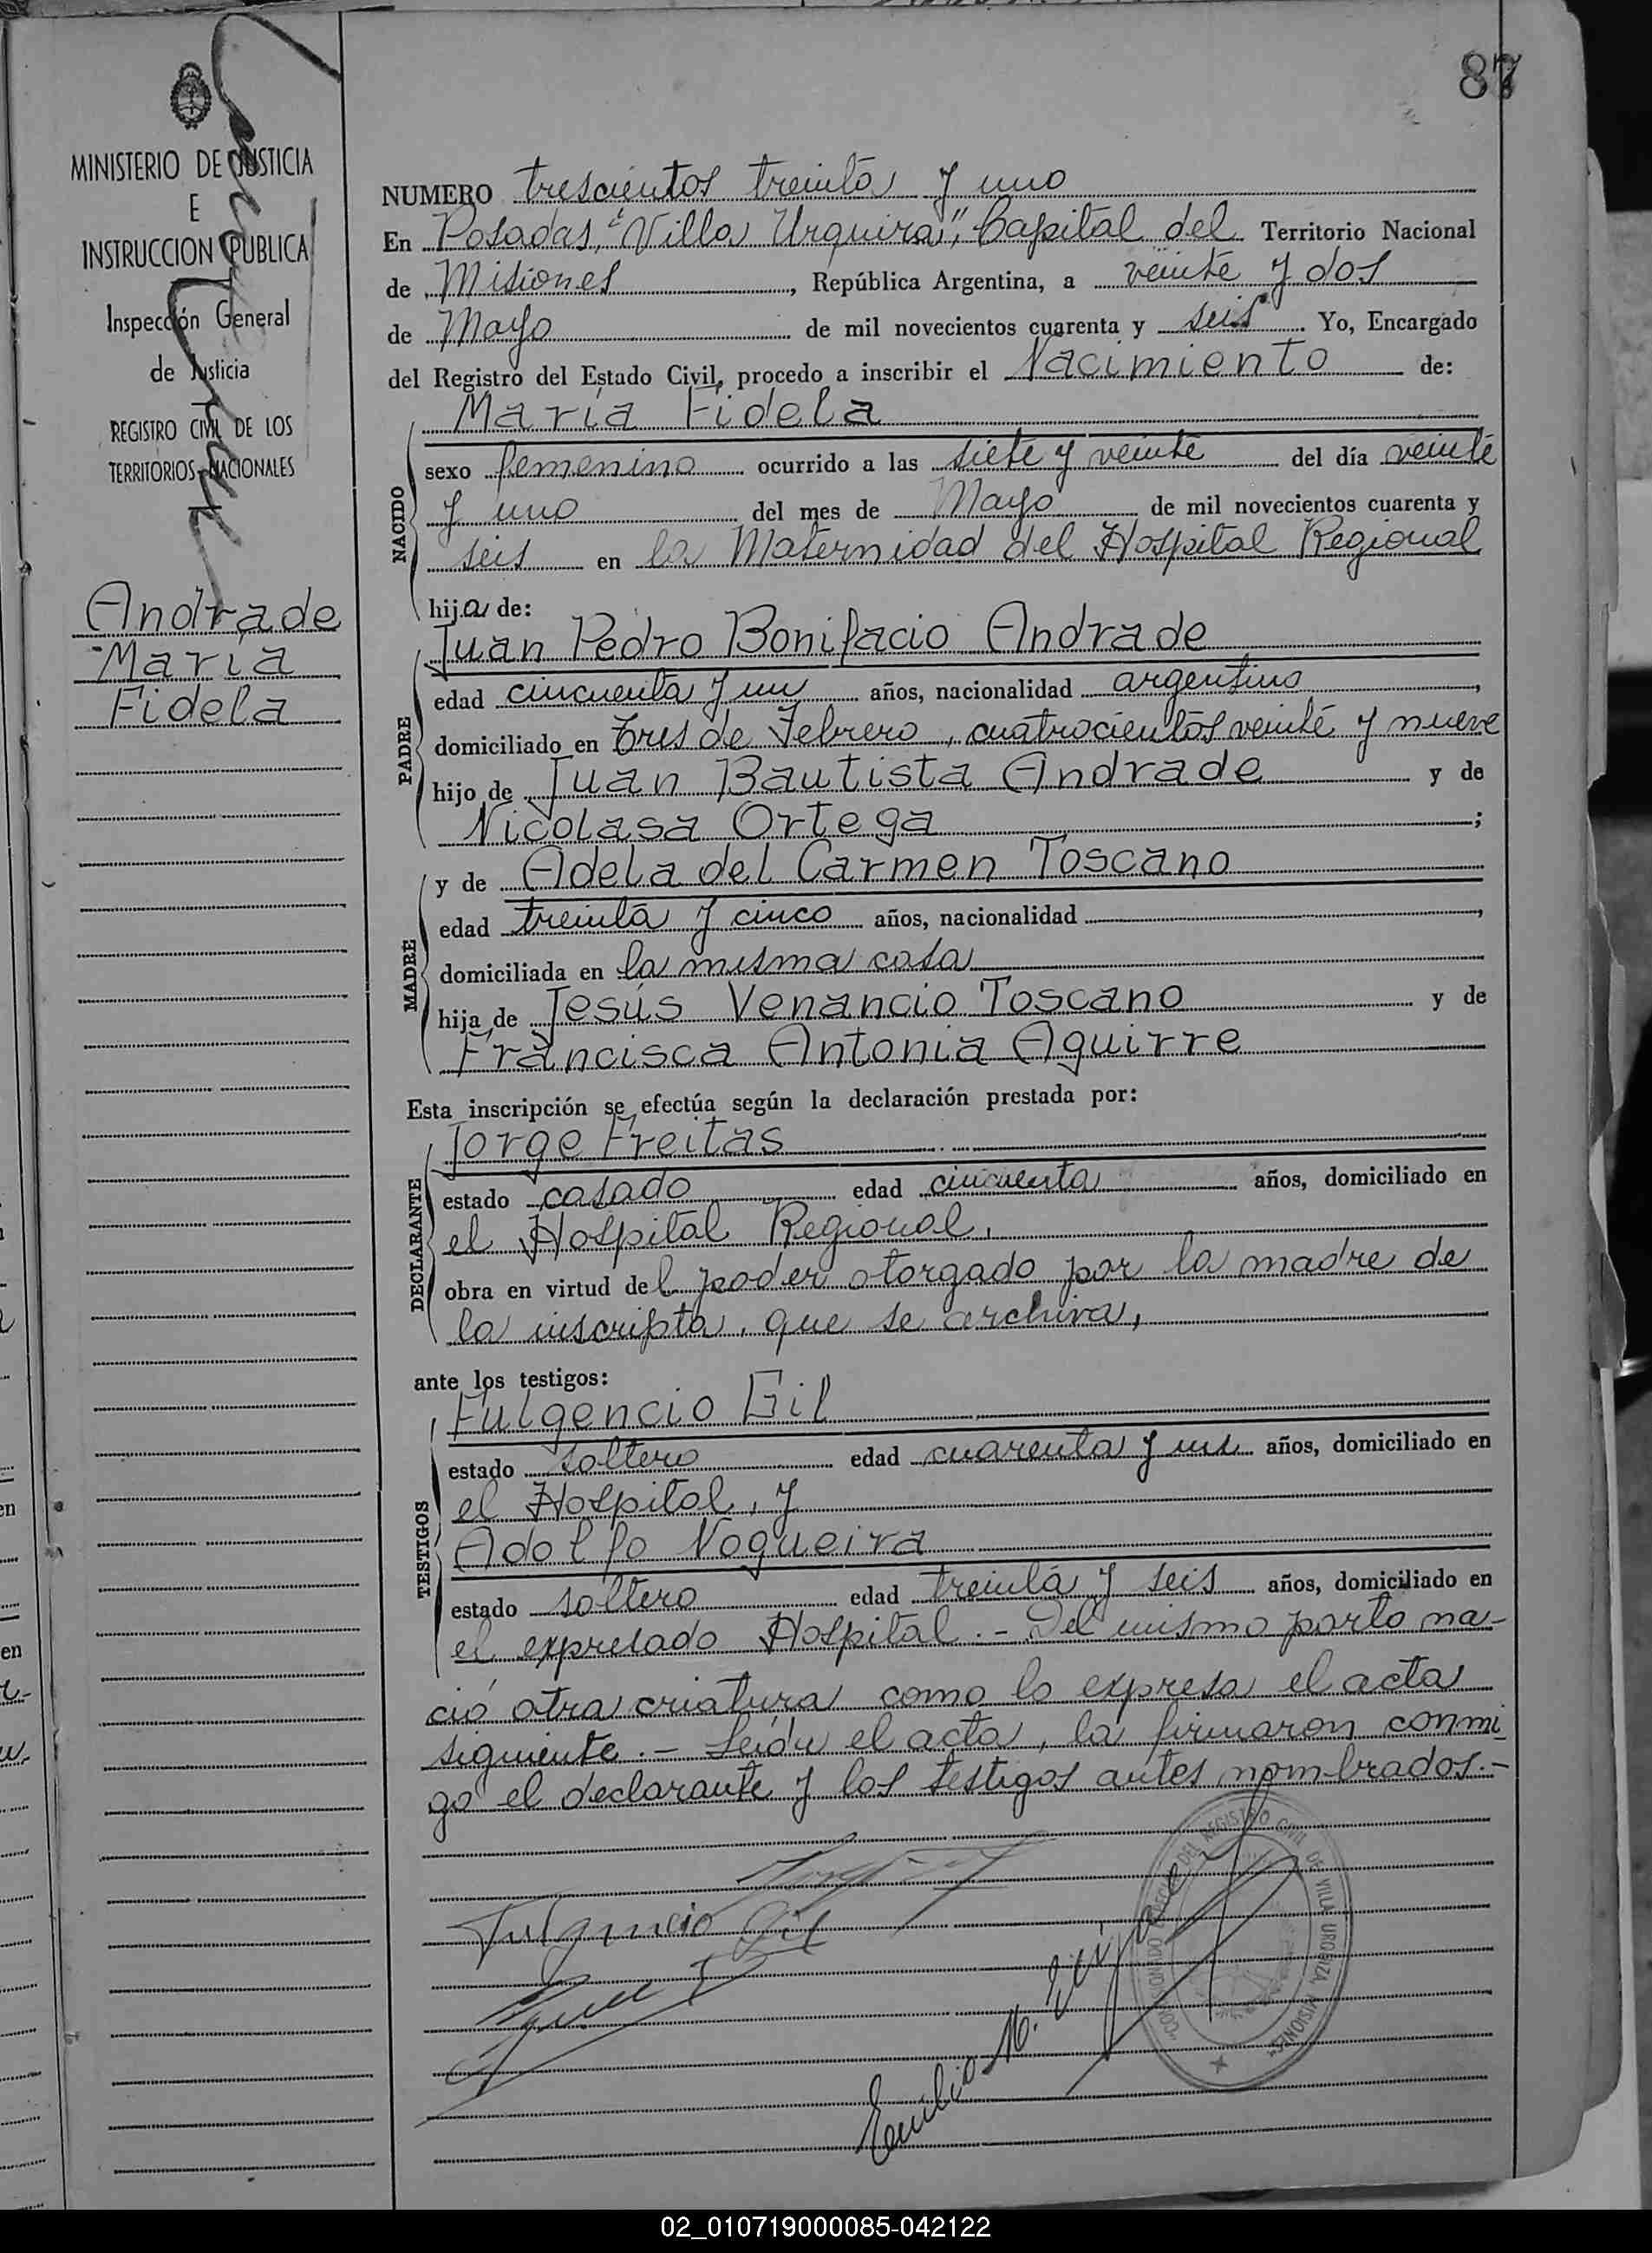 87
MINISTERIO DE JUSTICIA
E
INSTRUCCION PUBLICA
Inspección General
de Justicia
REGISTRO CIVIL DE LOS
TERRITORIOS NACIONALES
Andrade
María
Fidela
NUMERO trescientos treinta y uno
En Posadas, "Villa Urquiza", Capital del Territorio Nacional
de Misiones, República Argentina, a veinte y dos
de Mayo de mil novecientos cuarenta y seis. Yo, Encargado
del Registro del Estado Civil, procedo a inscribir el Nacimiento de:
NACIDO
María Fidela
sexo femenino ocurrido a las siete y veinte del día veinte
y uno del mes de Mayo de mil novecientos cuarenta y
seis en la Maternidad del Hospital Regional
hija de:
PADRE
Juan Pedro Bonifacio Andrade
edad cincuenta y un años, nacionalidad argentino,
domiciliado en Tres de Febrero, cuatrocientos veinte y nueve
hijo de Juan Bautista Andrade y de
Nicolasa Ortega;
MADRE
y de Adela del Carmen Toscano
edad treinta y cinco años, nacionalidad ,
domiciliada en la misma casa
hija de Jesús Venancio Toscano y de
Francisca Antonia Aguirre
Esta inscripción se efectúa según la declaración prestada por:
DECLARANTE
Jorge Freitas
estado casado edad cincuenta años, domiciliado en
el Hospital Regional,
obra en virtud del poder otorgado por la madre de
la inscripta, que se archiva,
ante los testigos:
TESTIGOS
Fulgencio Gil
estado soltero edad cuarenta y un años, domiciliado en
el Hospital, y
Adolfo Nogueira
estado soltero edad treinta y seis años, domiciliado en
el expresado Hospital.- Del mismo parto na-
ció otra criatura como lo expresa el acta
siguiente.- Leída el acta, la firmaron conmi-
go el declarante y los testigos antes nombrados.-
Fulgencio Gil
Emilio M.
DEL REGISTRO CIVIL DE VILLA URQUIZA MISIONES
02_010719000085-042122